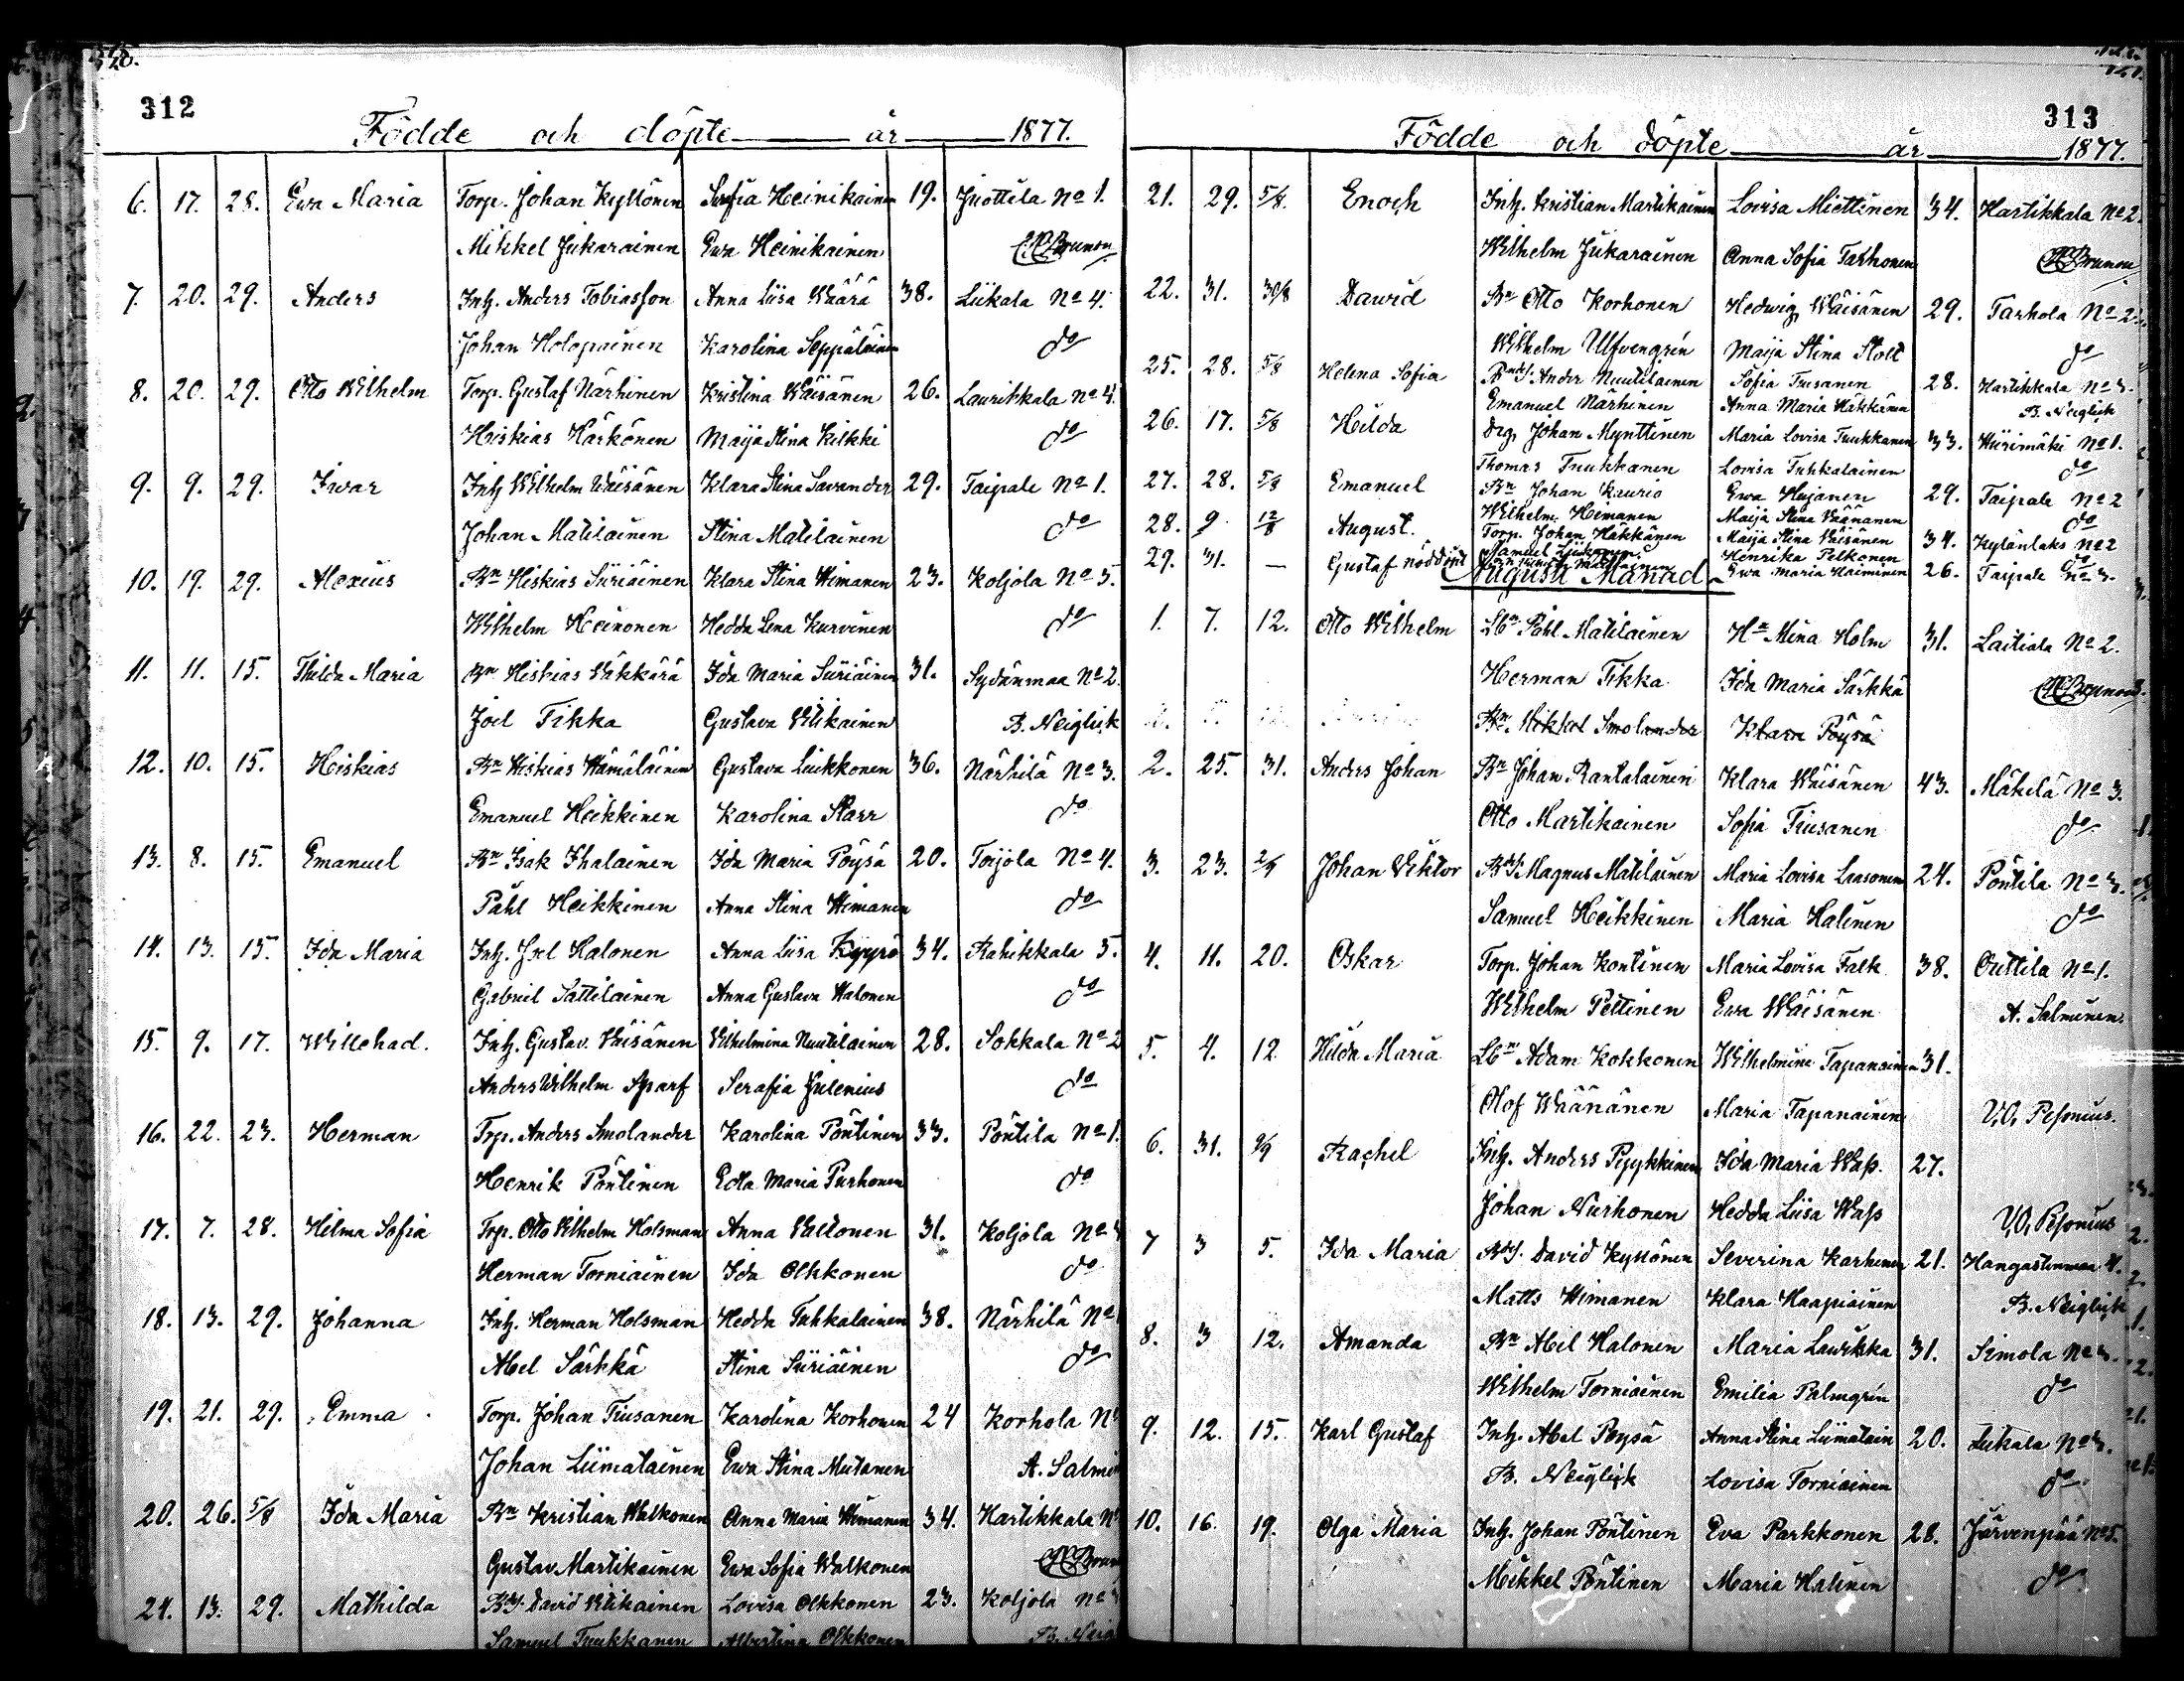 312
Födde och döpte år 1877.
6. 17. 28. Ewa Maria Torp. Johan Kyllönen Sofia Heinikainen 19. Juottila No 1.
Mikkel Jukarainen Ewa Heinikainen C. R. Brunou
7. 20. 29. Anders Inh. Anders Tobiasson Anna Liisa Wäärä 38. Liikala No 4.
Johan Holopainen Karolina Seppäläinen do
8. 20. 29. Otto Wilhelm Torp. Gustaf Närhinen Kristina Wäisänen 26. Laurikkala No 4.
Heiskias Härkönen Maija Stina Kilkki do
9. 9. 29. Iwar Inh Wilhelm Wäisänen Klara Stina Savander 29. Taipale No 1.
Johan Matilainen Stina Matilainen do
10. 19. 29. Alexius Bn Hiskias Siiriäinen Klara Stina Himanen 23. Koljola No 5.
Wilhelm Heinonen Hedda Lena Kurvinen do
11. 11. 15. Thilda Maria Bn Hiskias Väkkärä Ida Maria Siiriäinen 31. Sydänmaa No 2.
Joel Tikka Gustava Vilikainen B. Neiglick
12. 10. 15. Heiskias Bn Hiskias Hämäläinen Gustava Liukkonen 36. Närhilä No 3.
Emanuel Heikkinen Karolina Starr do
13. 8. 15. Emanuel Bn Isak Ihalainen Ida Maria Pöysä 20. Toijola No 4.
Påhl Heikkinen Anna Stina Himanen do
14. 13. 15. Ida Maria Inh. Joel Halonen Anna Liisa Kyyrö 34. Rahikkala 5.
Gabriel Sattilainen Anna Gustava Halonen do
15. 9. 17. Willehad. Inh. Gustav. Väisänen Vilhelmina Nuutilainen 28. Sokkala No 2
Anders Wilhelm Sparf Serafia Julenius do
16. 22. 23. Herman Trp. Anders Smolander Karolina Pöntinen 33. Pöntila No 1.
Henrik Pöntinen Edla Maria Purhonen do
17. 7. 28. Hilma Sofia Trp. Otto Vilhelm Holsman Anna Valtonen 31. Koljola No
Herman Torniainen Ida Olkkonen do
18. 13. 29. Johanna Inh. Herman Holsman Hedda Tuhkalainen 38. Närhilä No
Abel Särkkä Stina Siiriäinen do
19. 21. 29. Emma Torp. Johan Tiusanen Karolina Korhonen 24 Korhola No
Johan Liimatainen Ewa Stina Mutanen A. Salmi
20. 26. 5/8 Ida Maria Bn Kristian Walkonen Anna Maria Himanen 34. Hartikkala No
Gustav Martikainen Ewa Sofia Walkonen C. R. Brun
21. 13. 29. Mathilda BdS. David Vilikainen Lovisa Olkkonen 23. Koljola No
Samuel Tuukkanen Albertina Olkkonen B. Neig
313
Födde och döpte år 1877.
21. 29. 5/8. Enoch Inh. Kristian Martikainen Lovisa Miettinen 34. Hartikkala No 2
Wilhelm Jukarainen Anna Sofia Tarhonen C. R. Brunou
22. 31. 30/8 Dawid Bn Otto Korhonen Hedwig Wäisänen 29. Tarhola No 2
Wilhelm Ulfvengrén Maija Stina Stolt do
25. 28. 5/8 Helena Sofia BndS. Ander Nuutilainen Sofia Tiusanen 28. Hartikkala No 3.
Emanuel Närhinen Anna Maria Häkkänen B. Neiglick
26. 17. 5/8 Hilda Drg. Johan Mynttinen Maria Lovisa Tuukkanen 33. Hiirimäki No 1.
Thomas Tuukkanen Lovisa Tuhkalainen do
27. 28. 5/8 Emanuel Bn Johan Kauria Ewa Hujanen 29. Taipale No 2
Wilhelm Himanen Maija Stina Väänänen do
28. 9. 12/8 August. Torp. Johan Häkkänen Maija Stina Väisänen 34. Kylänlaks No 2
Samuel Liikanen Henrika Pelkonen do
29. 31. — Gustaf nöddöpt Ewa Maria Haiminen 26. Taipale No 3.
Augusti Månad
1. 7. 12. Otto Wilhelm Lbn Påhl Matilainen Hn Mina Holm 31. Laitiala No 2.
Herman Tikka Ida Maria Särkkä C. R. Brunou
Bn. Mikkel Smolander Klara Pöysä
2. 25. 31. Anders Johan Bn Johan Rantalainen Klara Wäisänen 43. Mäkelä No 3.
Otto Martikainen Sofia Tiusanen do
3. 23. 2/9 Johan Viktor BdS. Magnus Matilainen Maria Lovisa Laasonen 24. Pöntila No 3.
Samuel Heikkinen Maria Halinen do
4. 11. 20. Oskar Torp. Johan Kontinen Maria Lovisa Falk 38. Outtila No 1.
Wilhelm Pettinen Ewa Wäisänen A. Salminen.
5. 4. 12 Hilda Maria Lbn Adam Kokkonen Wilhelmina Tapanainen 31.
Olof Wäänänen Maria Tapanainen V. O. Pesonius.
6. 31. 9/9 Rachel Inh. Anders Pyykkinen Ida Maria Wass. 27.
Johan Niirhonen Hedda Liisa Wass V. O. Pesonius
7 3 5. Ida Maria BdS. David Kyllönen Severina Karhunen 21. Hangastenmaa 4.
Matts Himanen Klara Haapiainen B. Neiglick
8. 3 12. Amanda Bn Abel Halonen Maria Laurikka 31. Simola No 3.
Wilhelm Torniainen Emilia Palmgrén do
9. 12. 15. Karl Gustaf Inh. Abel Pöysä Anna Stina Liimatain 20. Liikala No 3.
B. Neiglick Lovisa Torniainen do
10. 16. 19. Olga Maria Inh. Johan Pöntinen Eva Parkkonen 28. Järvenpää No 5.
Mikkel Pöntinen Maria Halinen do